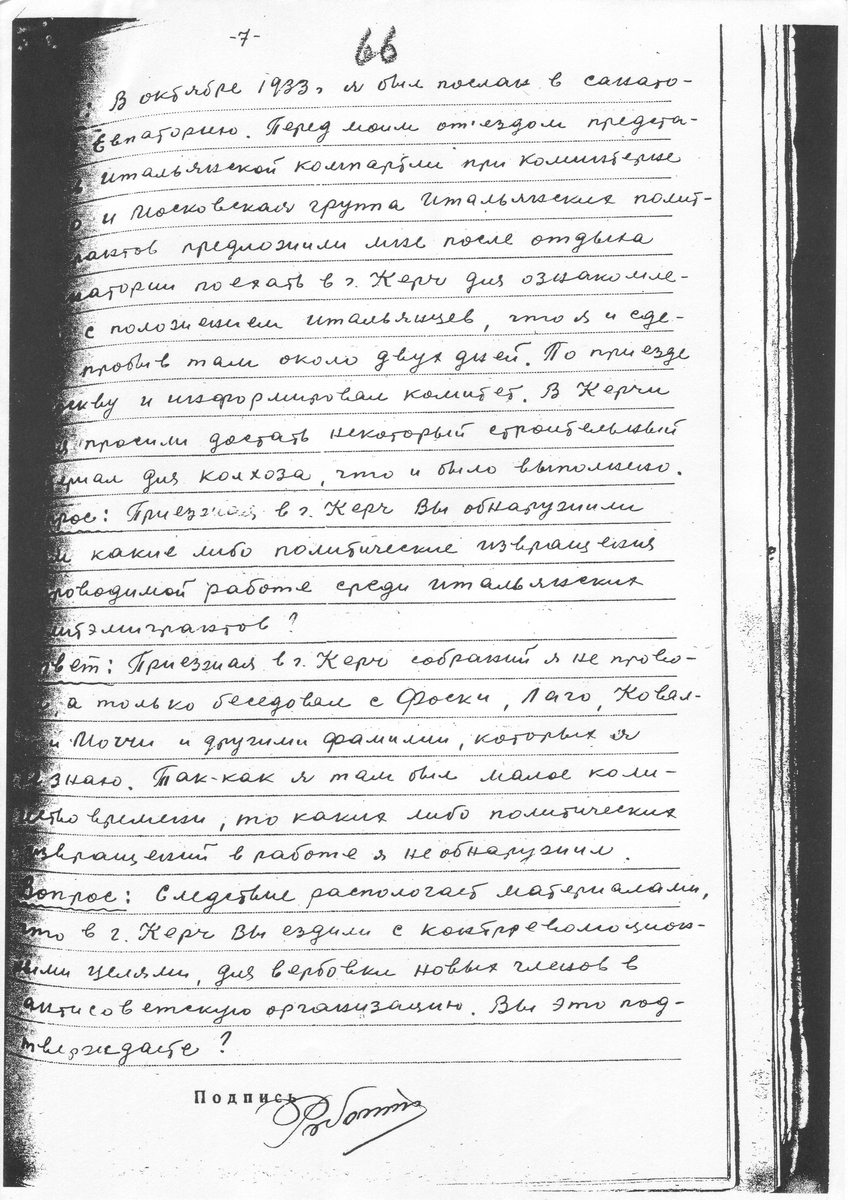 -7-
66
: В октябре 1933 г я был послан в санато-
Евпаторию. Перед моим от'ездом предста-
итальянской компартии при коминтерне
и Московская группа итальянских полит-
рантов предложили мне после отдыха
патории поехать в г. Керчь для ознакомле-
с положением итальянцев, что я и сде-
пробыв там около двух дней. По приезде
скву и информировал комитет. В Керчи
просили достать некоторый строительный
ериал для колхоза, что и было выполнено.
прос: Приезжая в г. Керчь Вы обнаружили
какие либо политические извращения
роводимой работе среди итальянских
литэмигрантов?
твет: Приезжая в г. Керчь собраний я не прово-
а только беседовал с Фоски, Лаго, Ковал-
и Моччи и другими фамилии, которых я
знаю. Так-как я там был малое коли-
чество времени, то каких либо политических
извращений в работе я не обнаружил.
Вопрос: Следствие распологает материалами,
что в г. Керчь Вы ездили с контрреволюцион-
ными целями, для вербовки новых членов в
антисоветскую организацию. Вы это под-
тверждаете?
Подпись